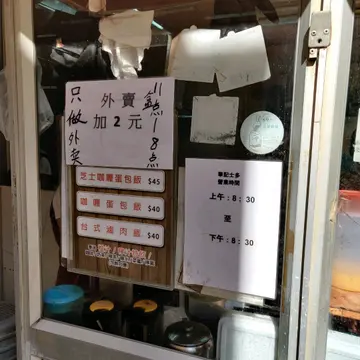 只做外卖
外賣
加2元
11點-8点
芝士咖喱蛋包飯 $45
咖喱蛋包飯 $40
台式滷肉飯 $40
華記士多
營業時間
上午:8:30
至
下午:8:30